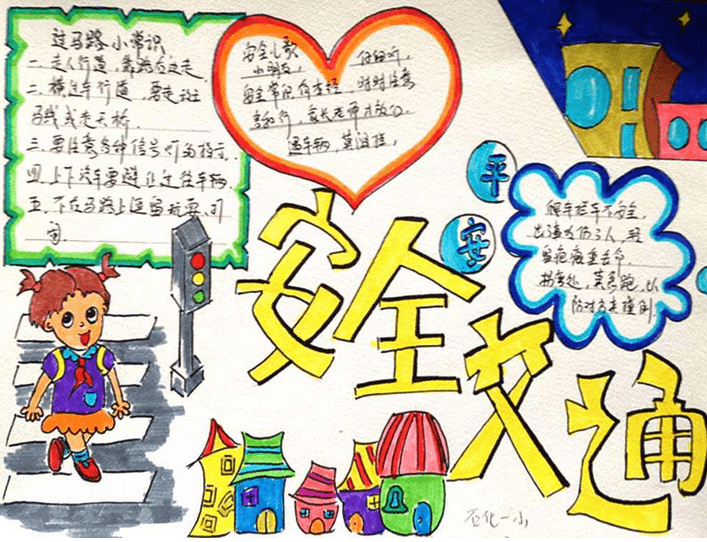 过马路小常识
一.走人行道,靠路右边走.
二.横过车行道,要走斑
马线或走天桥
三.要注意各种信号灯的指示.
四.上下汽车要避让过往车辆.
五.不在马路上逗留玩耍、打
闹.
安全儿歌
小朋友, 仔细听,
安全常识有本经, 时时注意
家长老师才放心.
遇车辆,莫
平安
爬车拦车不安全,
出法
拐弯处,莫急跑,以
防对方来撞倒.
安全交通
石化一小